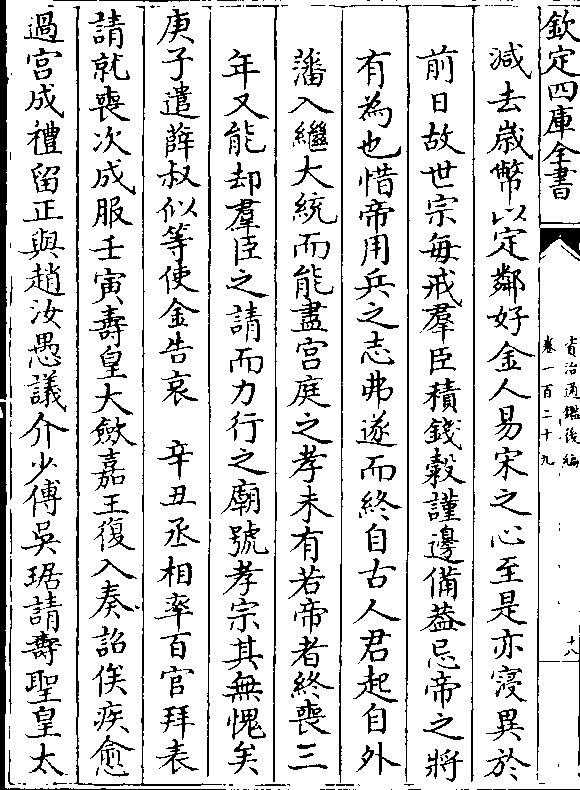 欽定四庫全書
資治通鑑後編
卷一百二十九
十八
減去嵗幣以定鄰好金人易宋之心至是亦寖異於
前日故世宗毎戒羣臣積錢穀謹邊備葢忌帝之將
有為也惜帝用兵之志弗遂而終自古人君起自外
藩入繼大統而能盡宫庭之孝未有若帝者終喪三
年又能却羣臣之請而力行之廟號孝宗其無愧矣
庚子遣薛叔似等使金告哀　辛丑丞相率百官拜表
請就喪次成服壬寅夀皇大斂嘉王復入奏詔俟疾愈
過宫成禮留正與趙汝愚議介少傅吳琚請夀聖皇太